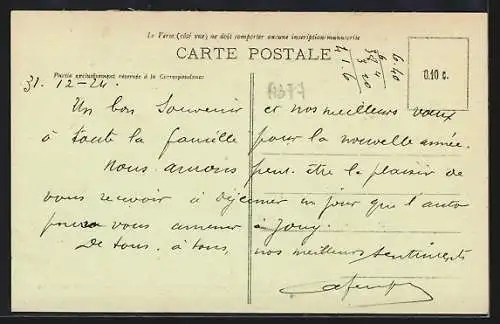 Le Verso (côté vue) ne doit comporter aucune inscription manuscrite
CARTE POSTALE
0.10 c.
Partie exclusivement réservée à la Correspondance
31. 12-24.
Un bon Souvenir et nos meilleurs vœux
à toute la famille pour la nouvelle année.
Nous aurons peut être le plaisir de
vous recevoir à déjeuner un jour que l'auto
vous amener à Jouy.
De tous, à tous, nos meilleurs sentiments